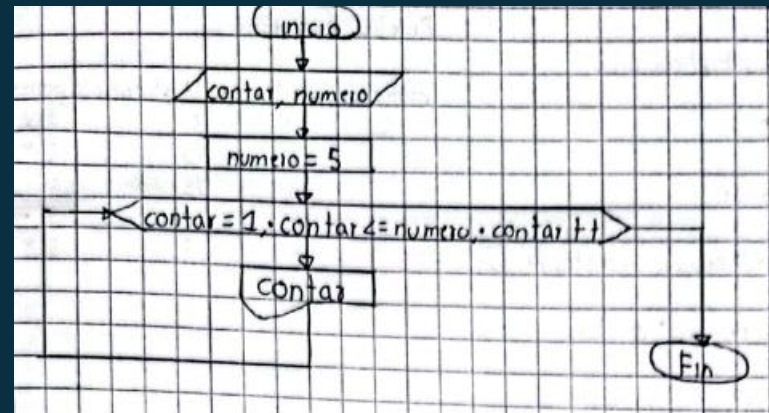 inicio
contar, numero
numero = 5
contar = 1, contar <= numero, contar ++
contar
Fin